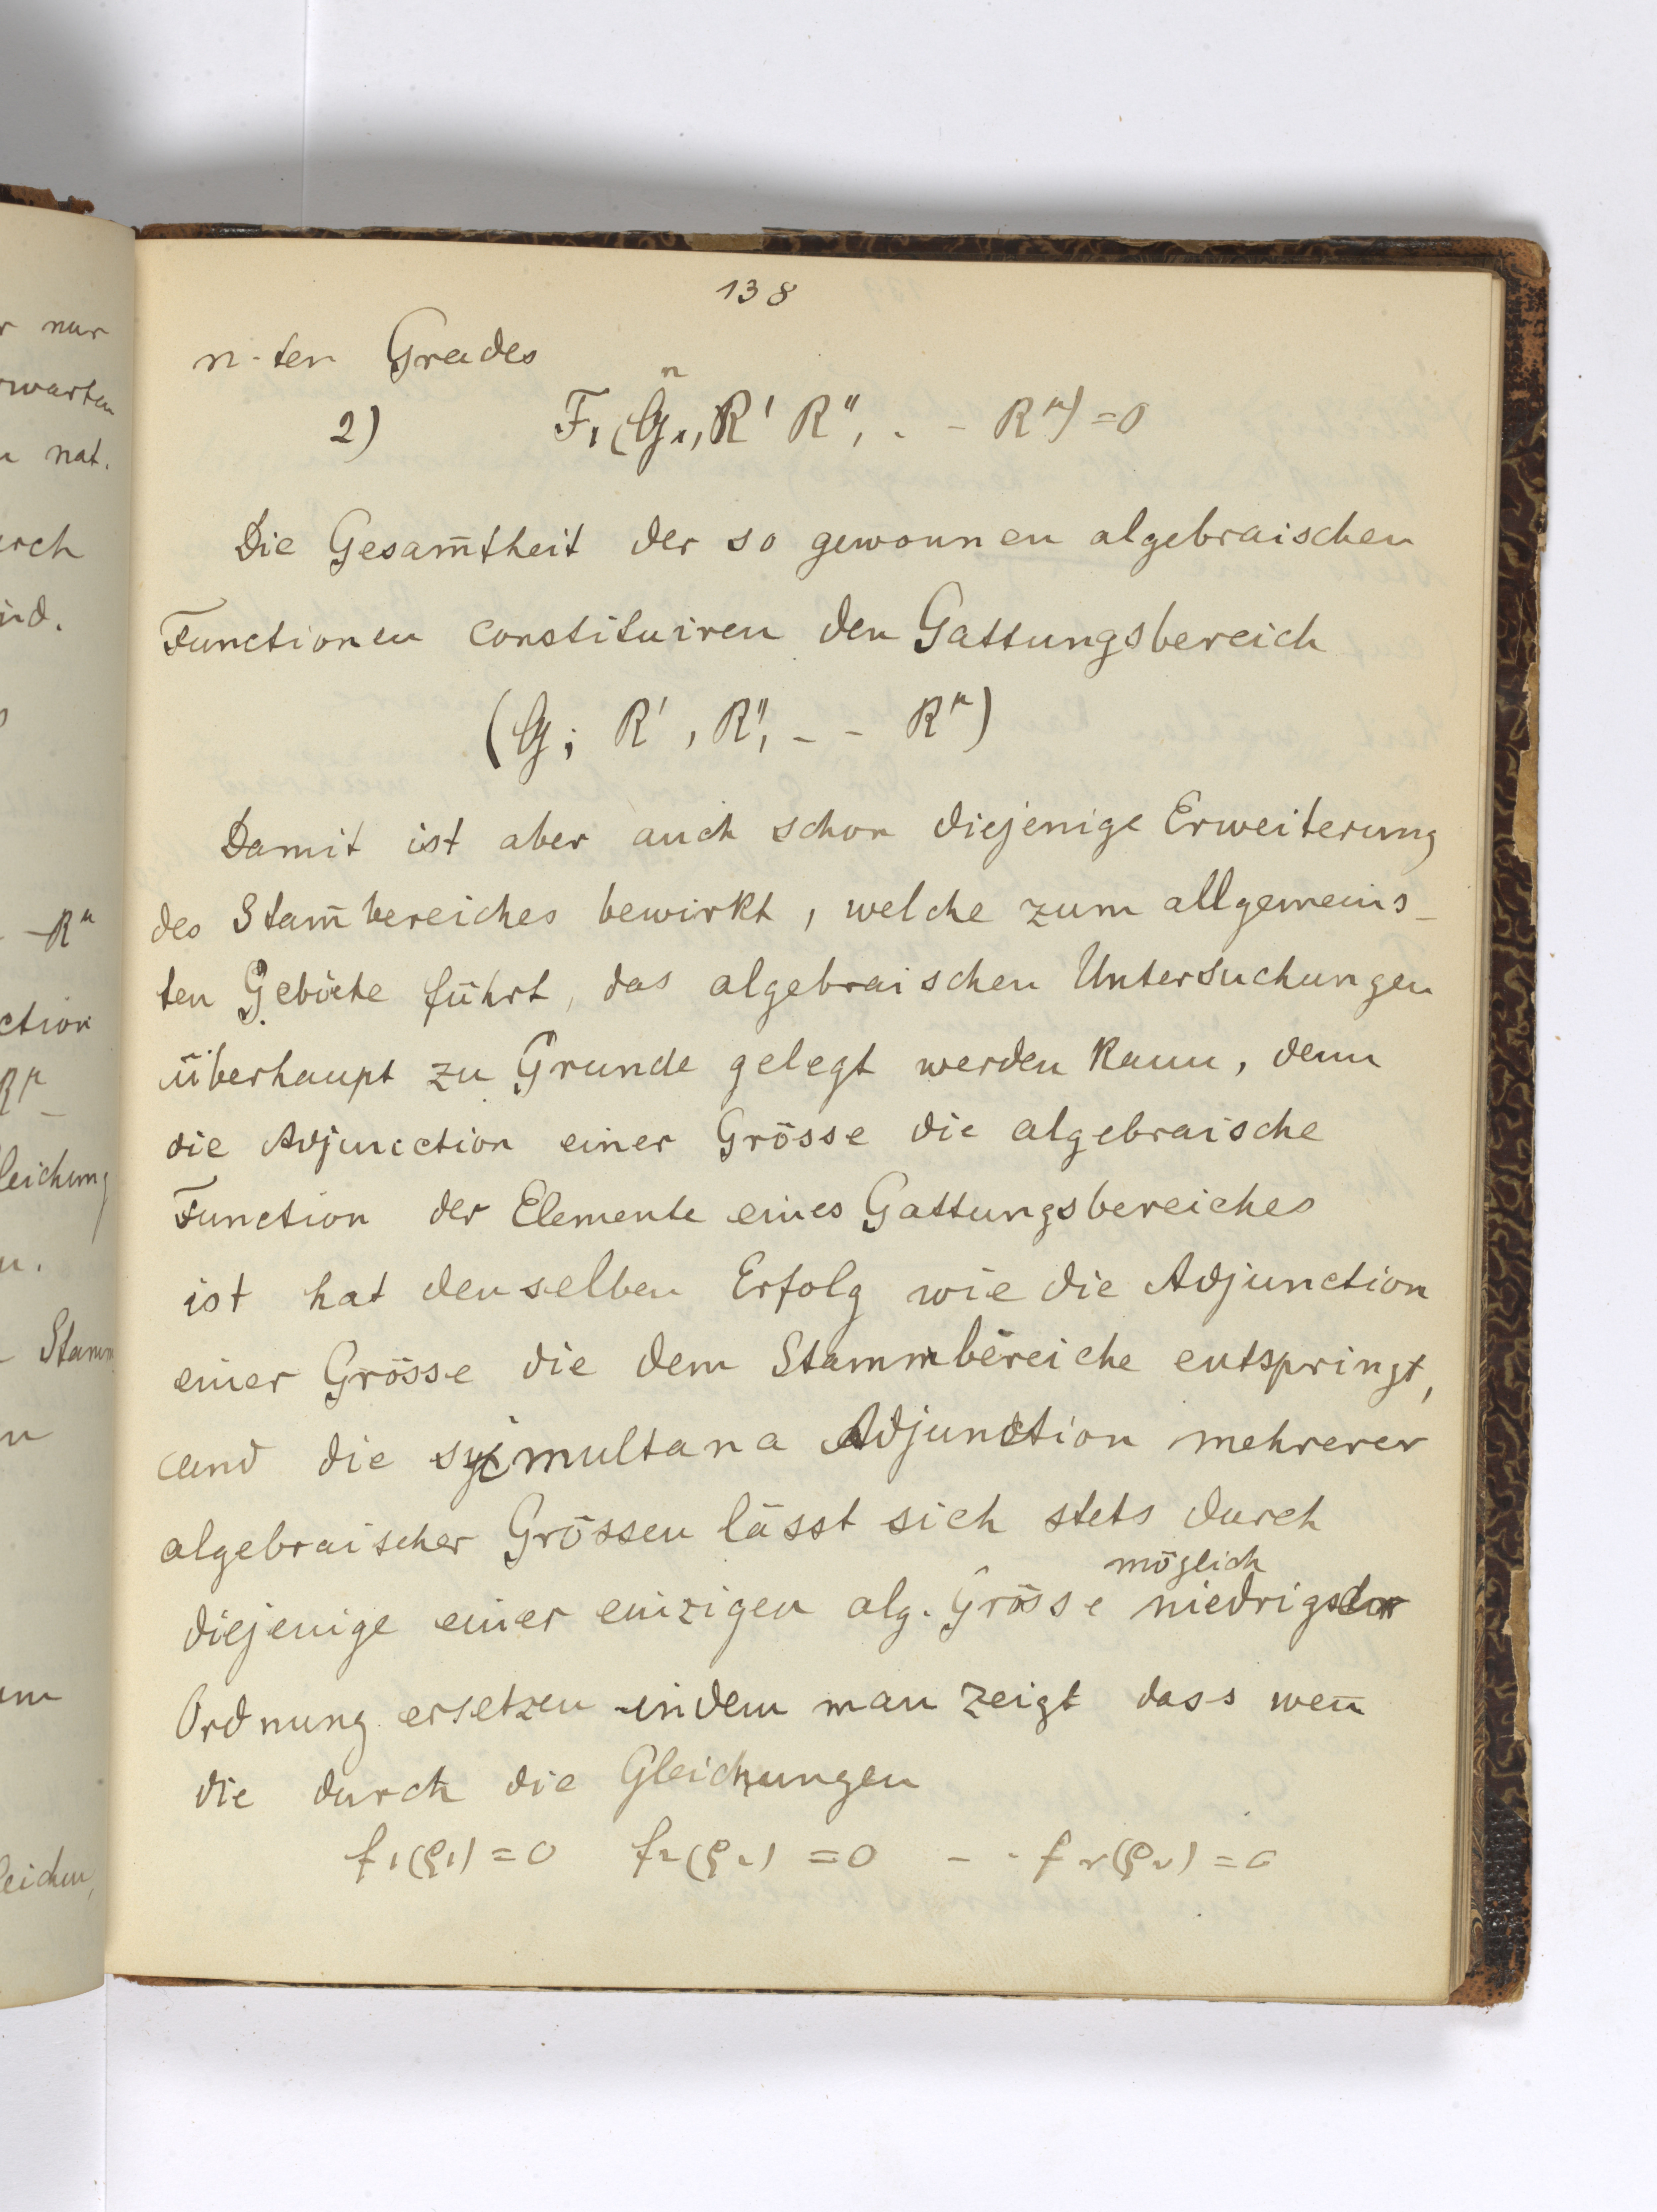 138
n-ten Grades
2) F₁(𝔊₁ⁿ, R' R'', . - Rᵘ) = 0
Die Gesam̄theit der so gewonnen algebraischen
Functionen constituiren den Gattungsbereich
(𝔊; R', R'', - - Rᵘ)
Damit ist aber auch schon diejenige Erweiterung
des Stam̄bereiches bewirkt, welche zum allgemeins-
ten Gebiete führt, das algebraischen Untersuchungen
überhaupt zu Grunde gelegt werden kann, denn
die Adjunction einer Grösse die algebraische
Function der Elemente eines Gattungsbereiches
ist hat denselben Erfolg wie die Adjunction
einer Grösse die dem Stammbereiche entspringt,
und die simultana Adjunction mehrerer
algebraischer Grössen lässt sich stets durch
möglich
diejenige einer einzigen alg. Grösse niedrigster
Ordnung ersetzen indem man zeigt dass wen̄
die durch die Gleichungen
f₁(ρ₁) = 0 f₂(ρ₂) = 0 - - fᵥ(ρᵥ) = 0
r nur
rwarten
nat.
urch
ind.
- Rᵘ
ction
leichung
n.
- Stamm
n
um
leichun,